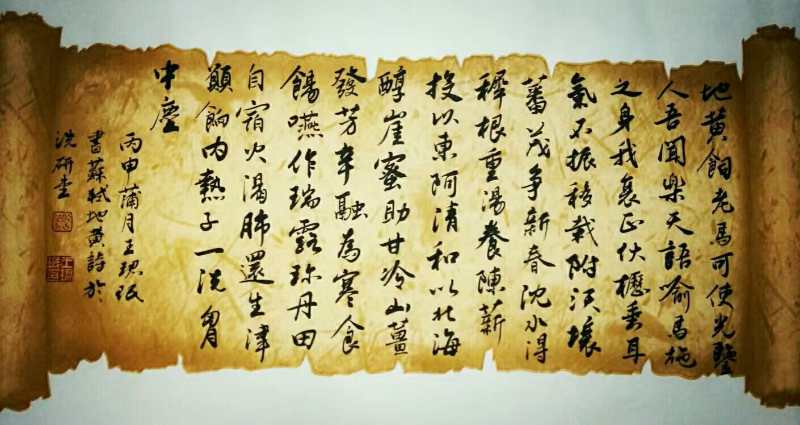 地黄餉老馬可使光鑒
人吾聞樂天語喻馬施
之身我衰正伏櫪垂耳
氣不振移栽附沃壤
蕃茂争新春沈水得
穉根重湯養陳薪
投以東阿清和以北海
醇崖蜜助甘冷山薑
發芳辛融為寒食
餳嚥作瑞露珍丹田
自宿火渴肺還生津
願餉内熱子一洗胷
中塵
丙申蒲月王
書蘇軾地黄詩於
洗研堂